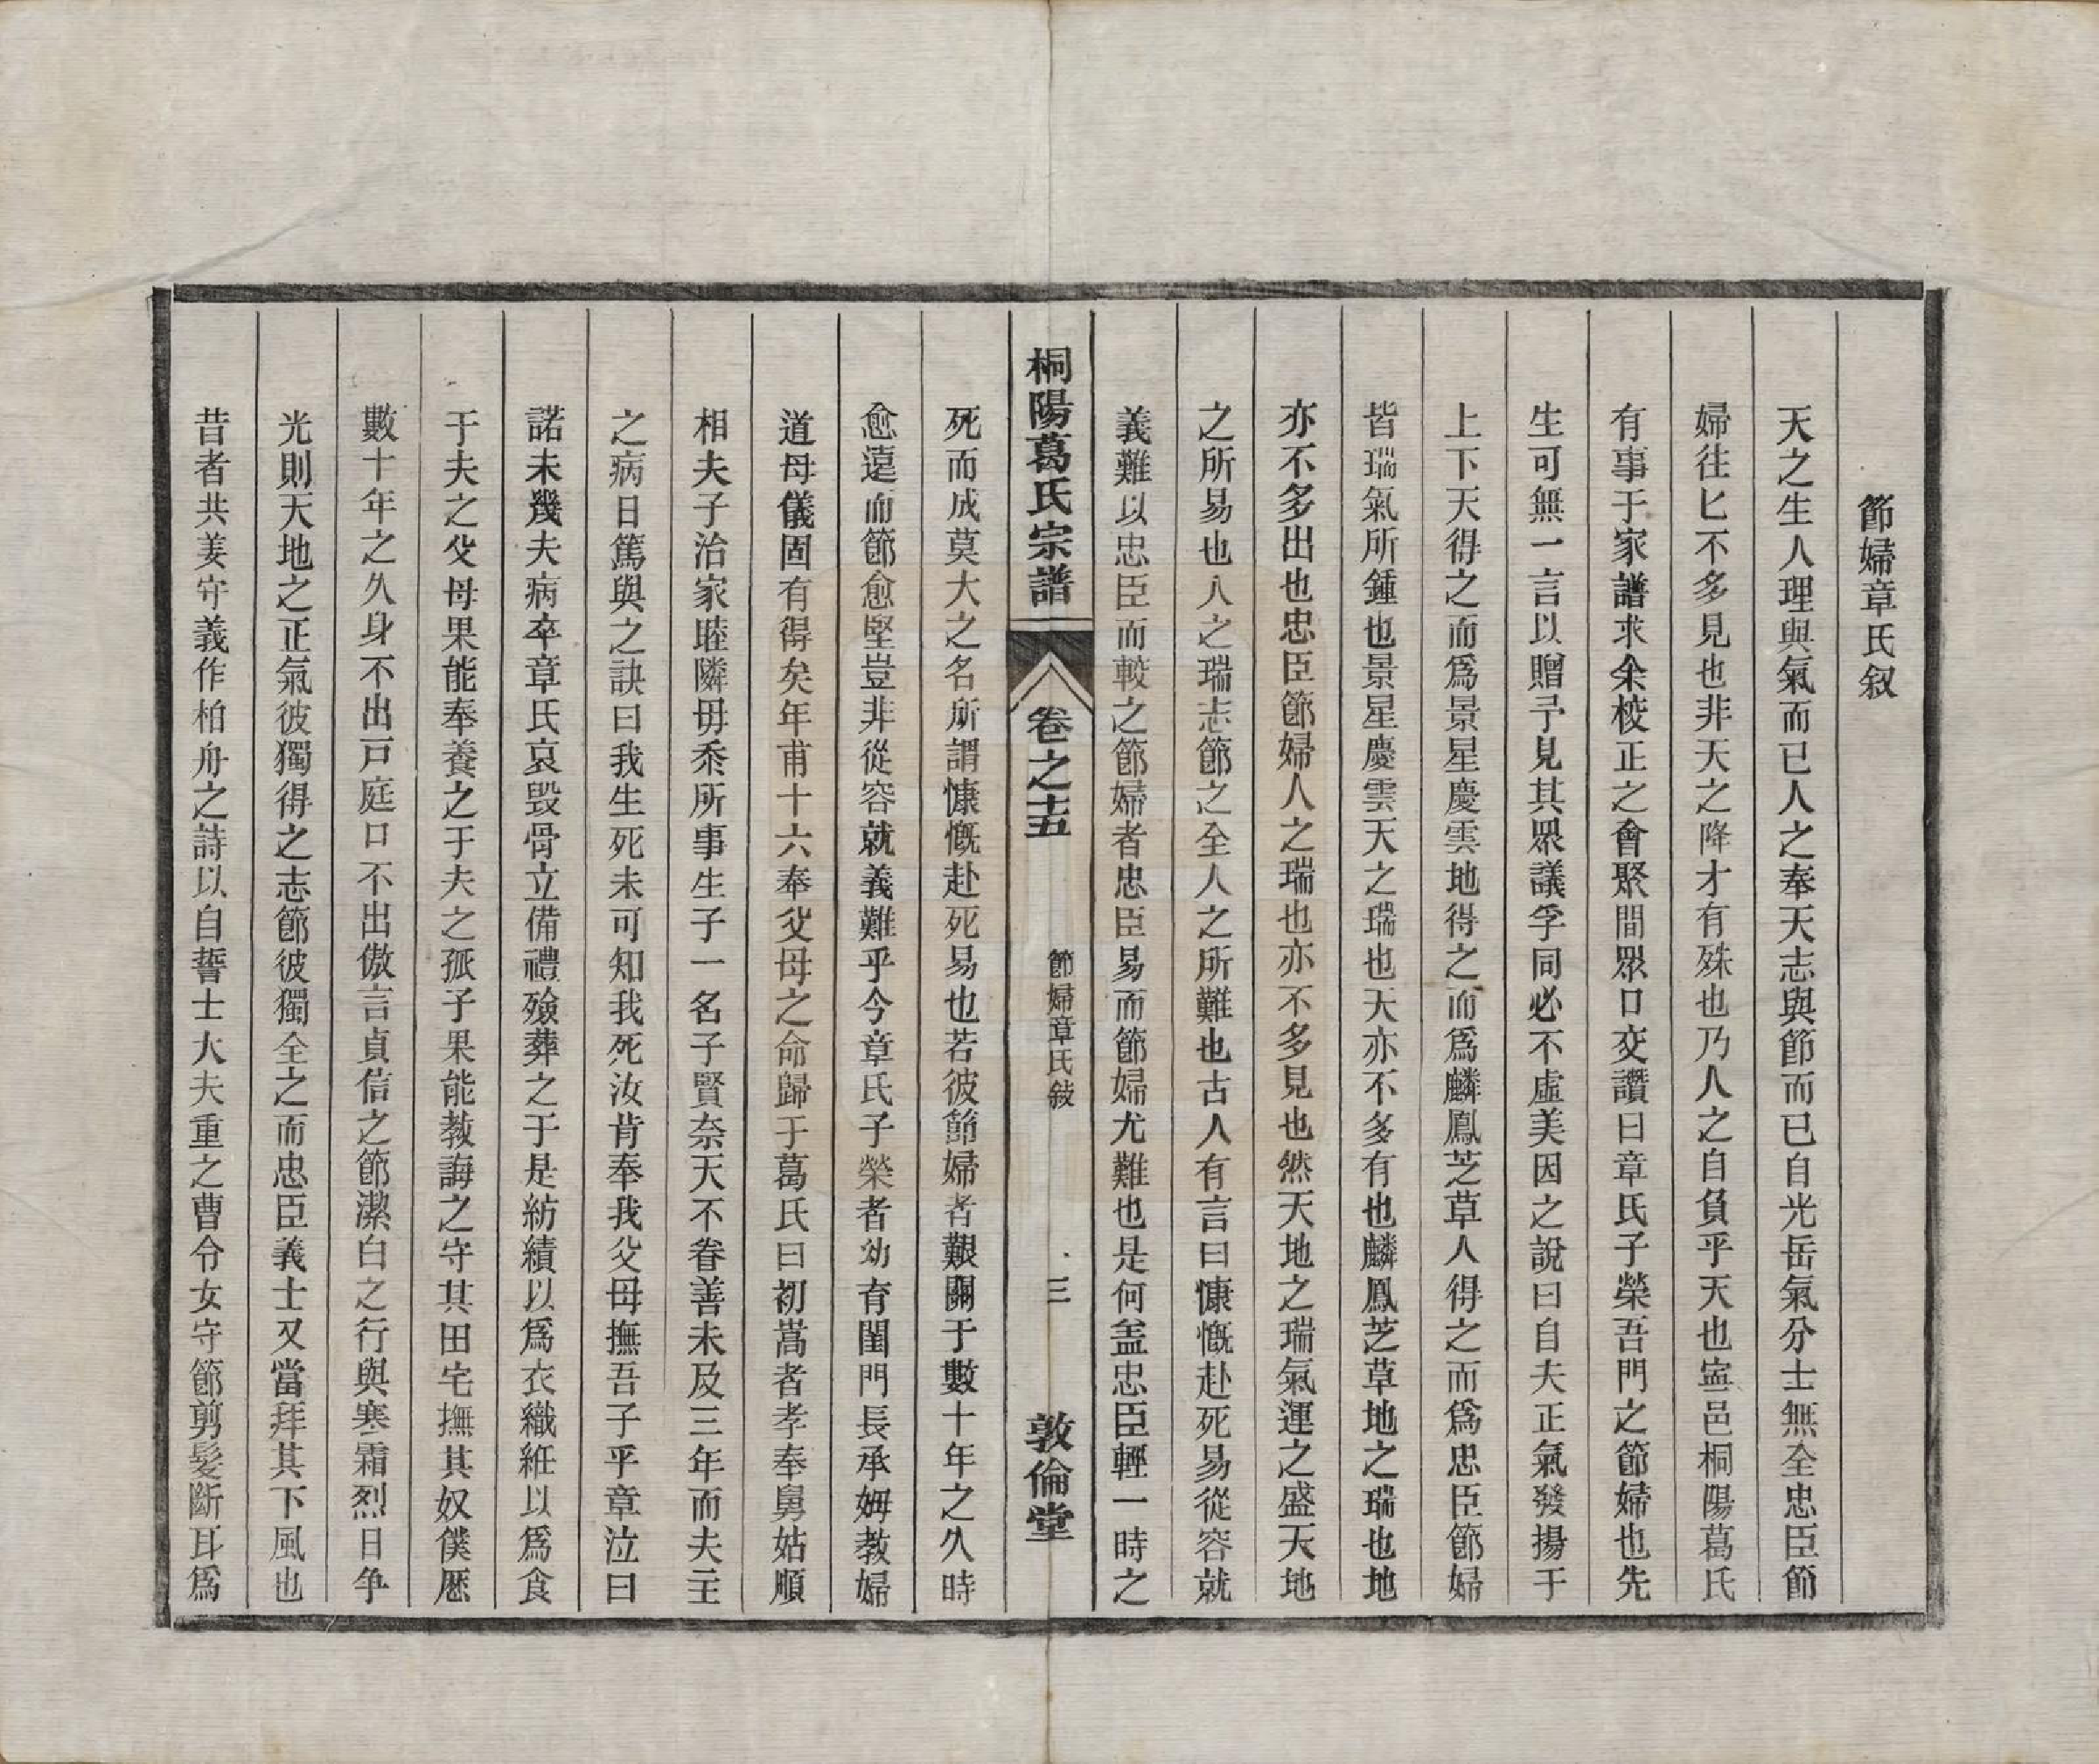 節婦章氏叙
天之生人理與氣而已人之奉天志與節而已自光岳氣分士無全忠臣節
婦往匕不多見也非天之降才有殊也乃人之自負乎天也寧邑桐陽葛氏
有事于家譜求余校正之會聚間眾口交讚曰章氏子榮吾門之節婦也先
生可無一言以贈予見其眾議孚同必不虛美因之說曰自夫正氣發揚于
上下天得之而爲景星慶雲地得之而爲麟鳳芝草人得之而爲忠臣節婦
皆瑞氣所鍾也景星慶雲天之瑞也天亦不多有也麟鳳芝草地之瑞也地
亦不多出也忠臣節婦人之瑞也亦不多見也然天地之瑞氣運之盛天地
之所易也人之瑞志節之全人之所難也古人有言曰慷慨赴死易從容就
義難以忠臣而較之節婦者忠臣易而節婦尤難也是何盖忠臣輕一時之
桐陽葛氏宗譜
卷之十五
節婦章氏敍
三
敦倫堂
死而成莫大之名所謂慷慨赴死易也若彼節婦者艱關于數十年之久時
愈遠而節愈堅豈非從容就義難乎今章氏子榮者幼育閨門長承姆教婦
道母儀固有得矣年甫十六奉父母之命歸于葛氏曰初嵩者孝奉舅姑順
相夫子治家睦隣毋忝所事生子一名子賢奈天不眷善未及三年而夫主
之病日篤與之訣曰我生死未可知我死汝肯奉我父母撫吾子乎章泣曰
諾未幾夫病卒章氏哀毀骨立備禮殮葬之于是紡績以爲衣織絍以爲食
于夫之父母果能奉養之于夫之孤子果能教誨之守其田宅撫其奴僕歷
數十年之久身不出戸庭口不出傲言貞信之節潔白之行與寒霜烈日争
光則天地之正氣彼獨得之志節彼獨全之而忠臣義士又當拜其下風也
昔者共姜守義作柏舟之詩以自誓士大夫重之曹令女守節剪髮斷耳爲